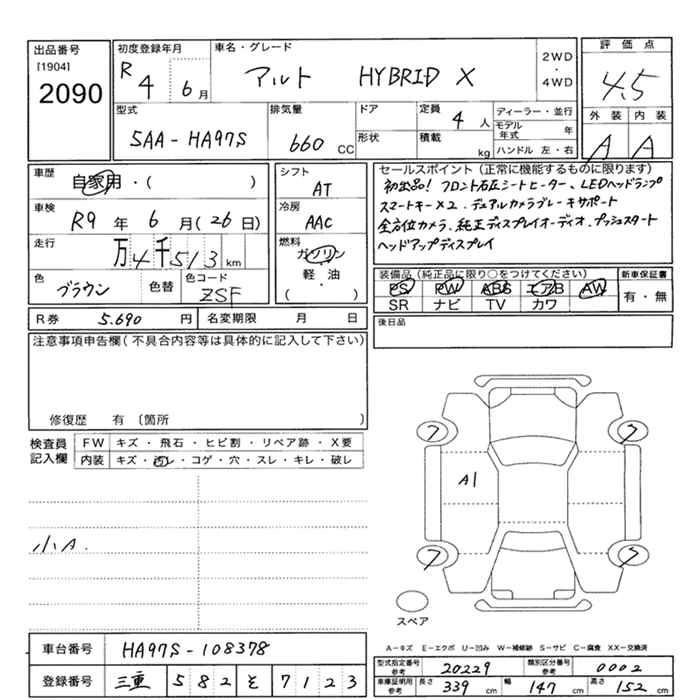 出品番号
[1904]
2090
初度登録年月
R 4 6月
車名・グレード
アルト HYBRID X
2WD
・
4WD
評価点
4.5
外装 内装
A A
型式
5AA-HA97S
排気量
660 CC
ドア
形状
定員
4 人
積載
kg
ディーラー・並行
モデル年式 年
ハンドル 左・右
車歴
自家用・( )
車検
R9 年 6 月(26日)
走行
万4千513 km
色
ブラウン
色替
色コード
ZSF
シフト
AT
冷房
AAC
燃料
ガソリン
軽・油
・
( )
セールスポイント(正常に機能するものに限ります)
初出品! フロント右左シートヒーター、LEDヘッドランプ
スマートキー×2、デュアルカメラブレーキサポート
全方位カメラ、純正ディスプレイオーディオ、プッシュスタート
ヘッドアップディスプレイ
装備品(純正品に限り○をつけてください)
PS PW ABS エアB AW
SR ナビ TV カワ
新車保証書
有・無
R券 5.690 円
名変期限 月 日
後日品
注意事項申告欄(不具合内容等は具体的に記入して下さい)
修復歴 有〔箇所 〕
検査員
記入欄
FW キズ・飛石・ヒビ割・リペア跡・X要
内装 キズ・汚レ・コゲ・穴・スレ・キレ・破レ
小A.
7 7
A1
7 7
スペア
A-キズ E-エクボ U-凹み W-補修跡 S-サビ C-腐食 XX-交換済
車台番号 HA97S-108378
登録番号 三重 582 そ 7123
型式指定番号
参考
20229
類別区分番号
参考
0002
車庫証明用
参考
長さ 339 cm 幅 147 cm 高さ 152 cm